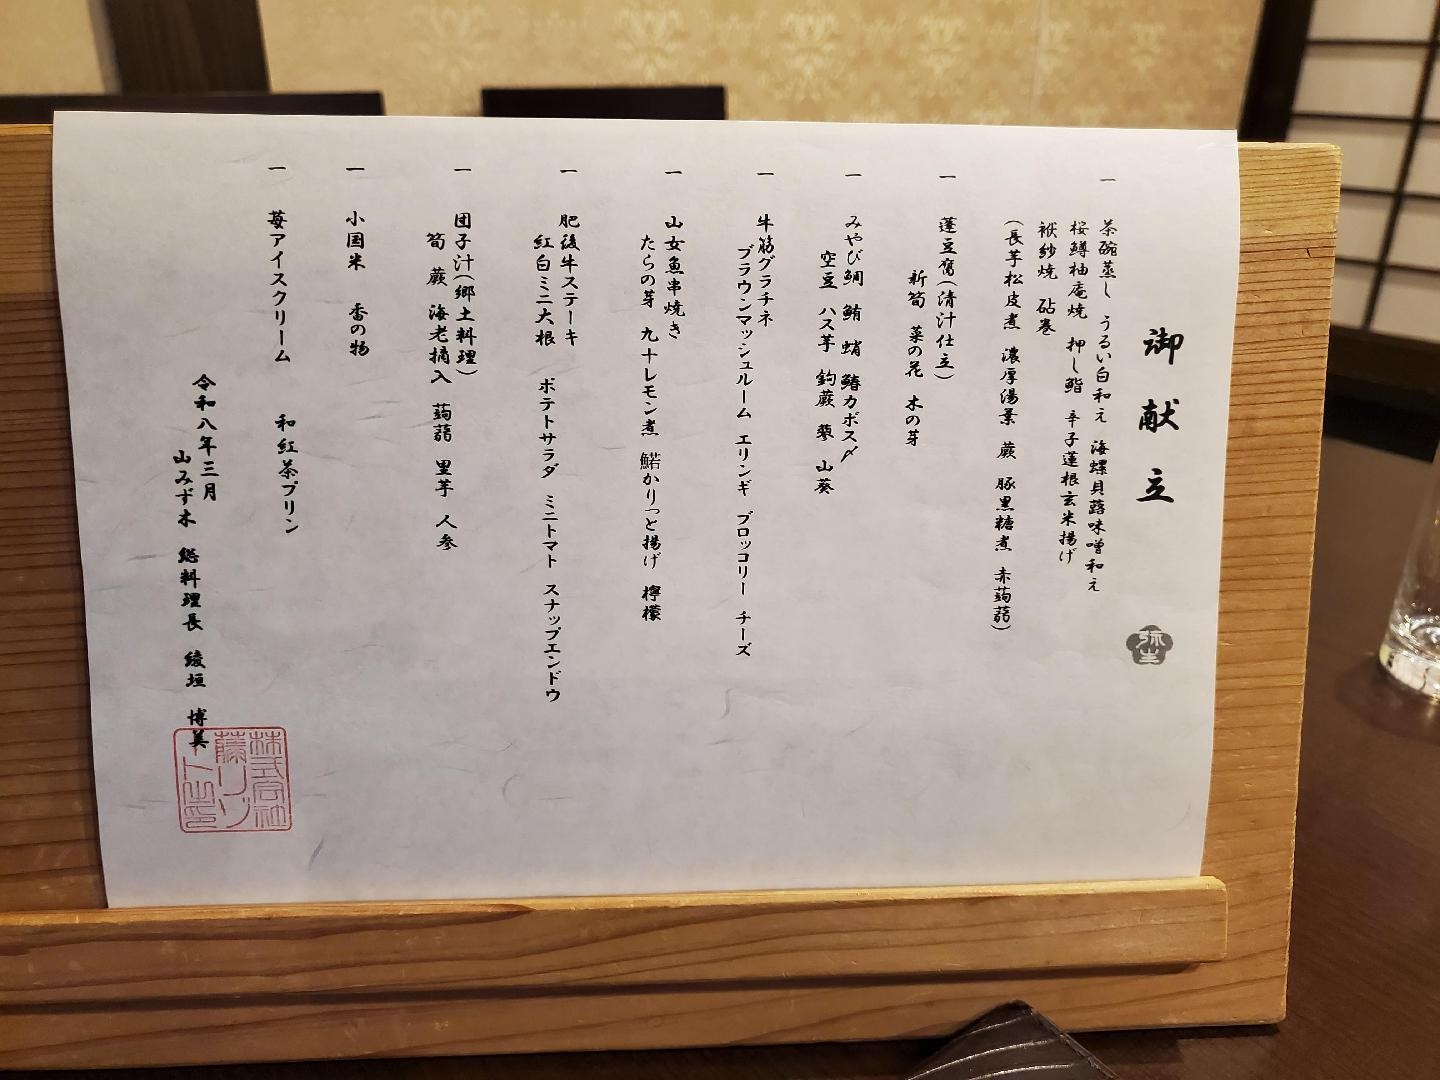 御献立
弥生
一 茶碗蒸し うるい白和え 海螺貝蕗味噌和え
桜鱒柚庵焼 押し鮨 辛子蓮根玄米揚げ
袱紗焼 砧巻
(長芋松皮煮 濃厚湯葉 蕨 豚黒糖煮 赤蒟蒻)
一 蓬豆腐(清汁仕立)
新筍 菜の花 木の芽
一 みやび鯛 鮪 蛸 鰆カボス〆
空豆 ハス芋 鈎蕨 蓼 山葵
一 牛筋グラチネ
ブラウンマッシュルーム エリンギ ブロッコリー チーズ
一 山女魚串焼き
たらの芽 九十レモン煮 鰙かりっと揚げ 檸檬
一 肥後牛ステーキ
紅白ミニ大根 ポテトサラダ ミニトマト スナップエンドウ
一 団子汁(郷土料理)
筍 蕨 海老摘入 蒟蒻 里芋 人参
一 小国米 香の物
一 苺アイスクリーム 和紅茶プリン
令和八年三月
山みず木 総料理長 綾垣 博美
株式会社
藤リゾ
ート之印